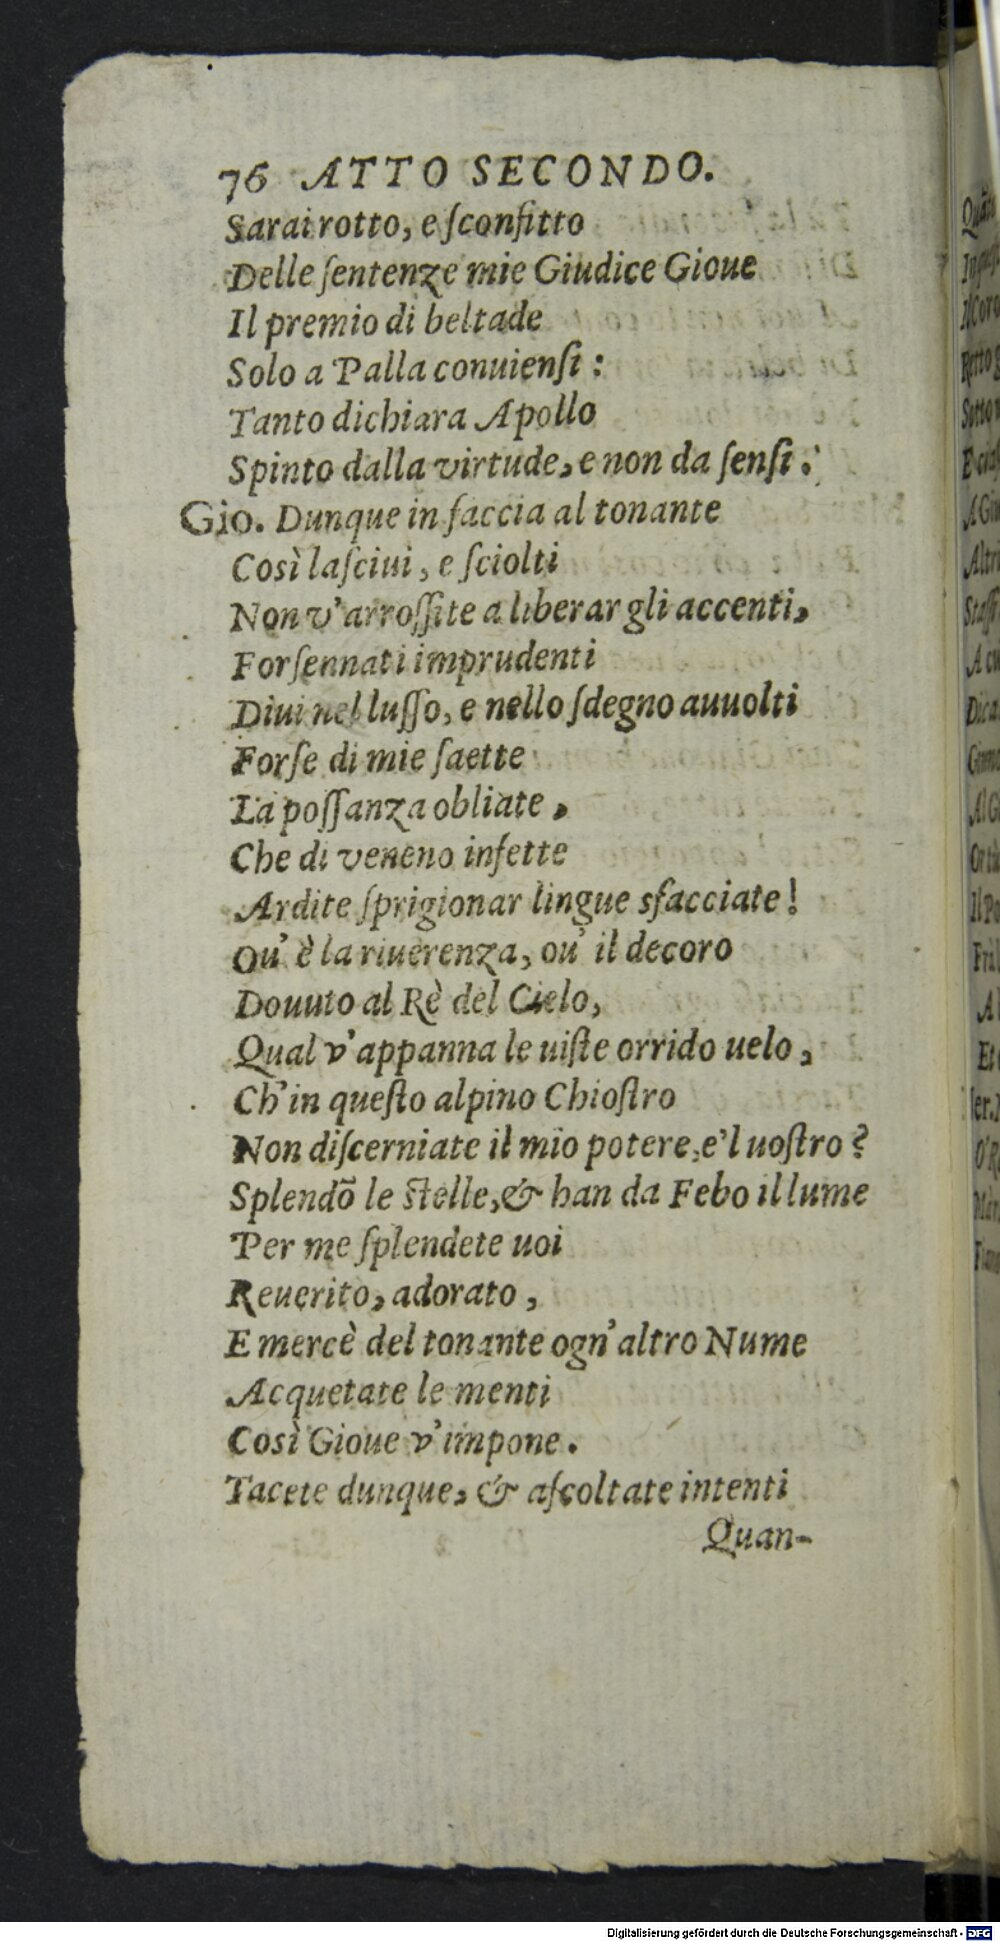 76 ATTO SECONDO.
Sarai rotto, e ſconfitto
Delle ſentenze mie Giudice Gioue
Il premio di beltade
Solo a Palla conuienſi:
Tanto dichiara Apollo
Spinto dalla virtude, e non da ſenſi.
Gio. Dunque in faccia al tonante
Così laſciui, e ſciolti
Non v'arroſſite a liberar gli accenti,
Forſennati imprudenti
Diui nel luſſo, e nello ſdegno auuolti
Forſe di mie ſaette
La poſſanza obliate,
Che di veneno infette
Ardite ſprigionar lingue sfacciate!
Ou' è la riuerenza, ou' il decoro
Douuto al Rè del Cielo,
Qual v'appanna le uiſte orrido uelo,
Ch'in queſto alpino Chioſtro
Non diſcerniate il mio potere, e'l uoſtro?
Splendõ le ſtelle, & han da Febo il lume
Per me ſplendete uoi
Reuerito, adorato,
E mercè del tonante ogn'altro Nume
Acquetate le menti
Così Gioue v'impone.
Tacete dunque, & aſcoltate intenti
Quan-
Digitalisierung gefördert durch die Deutsche Forschungsgemeinschaft - DFG